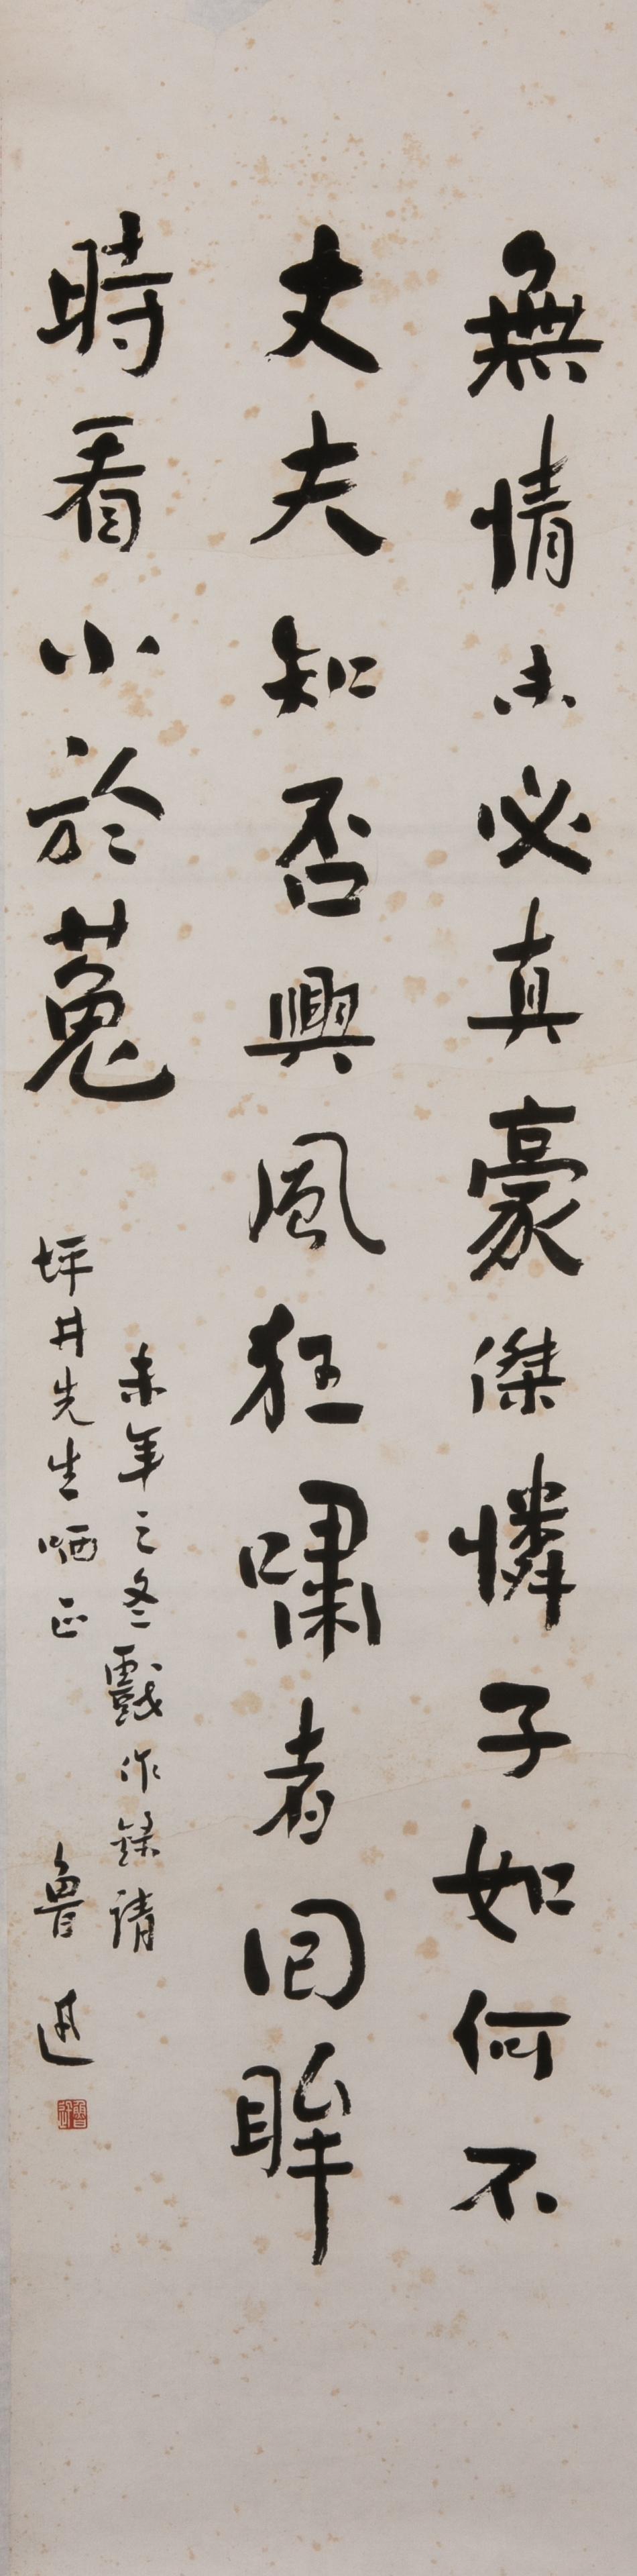 無情未必真豪傑憐子如何不
丈夫知否興風狂嘯者回眸
時看小於菟
未年之冬戲作錄請
坪井先生哂正
魯迅
魯迅